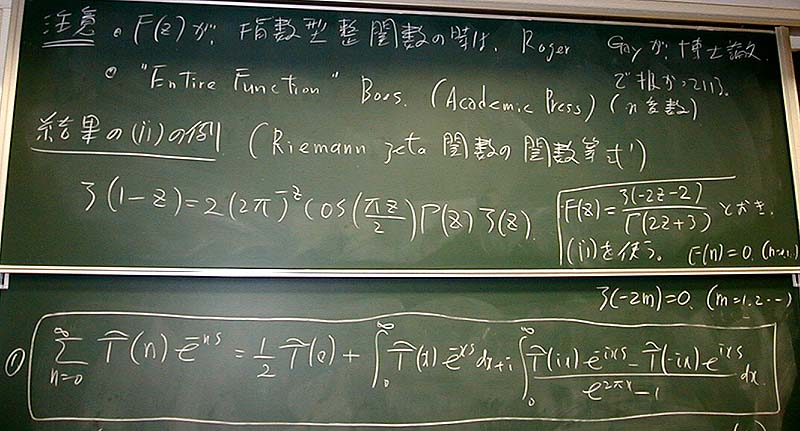 注意 ◦ F(z)が, 指数型整関数の時は, Roger Gayが, 博士論文
で扱かっている.
◦ "Entire Function" Boas. (Academic Press) (n変数)
結果の(ii)の例 (Riemann zeta 関数の関数等式)
ζ(1-z)=2(2π)^{-z} cos(πz/2) Γ(z) ζ(z).
F(z)=ζ(-2z-2)/Γ(2z+3) とおき,
(ii)を使う. F(n)=0.
ζ(-2m)=0. (m=1,2...)
① ∑_{n=0}^{∞} T̂(n) e^{-ns} = 1/2 T̂(0) + ∫_0^∞ T̂(x) e^{-xs} dx + i ∫_0^∞ (T̂(ix) e^{-ixs} - T̂(-ix) e^{ixs})/(e^{2πx} - 1) dx.